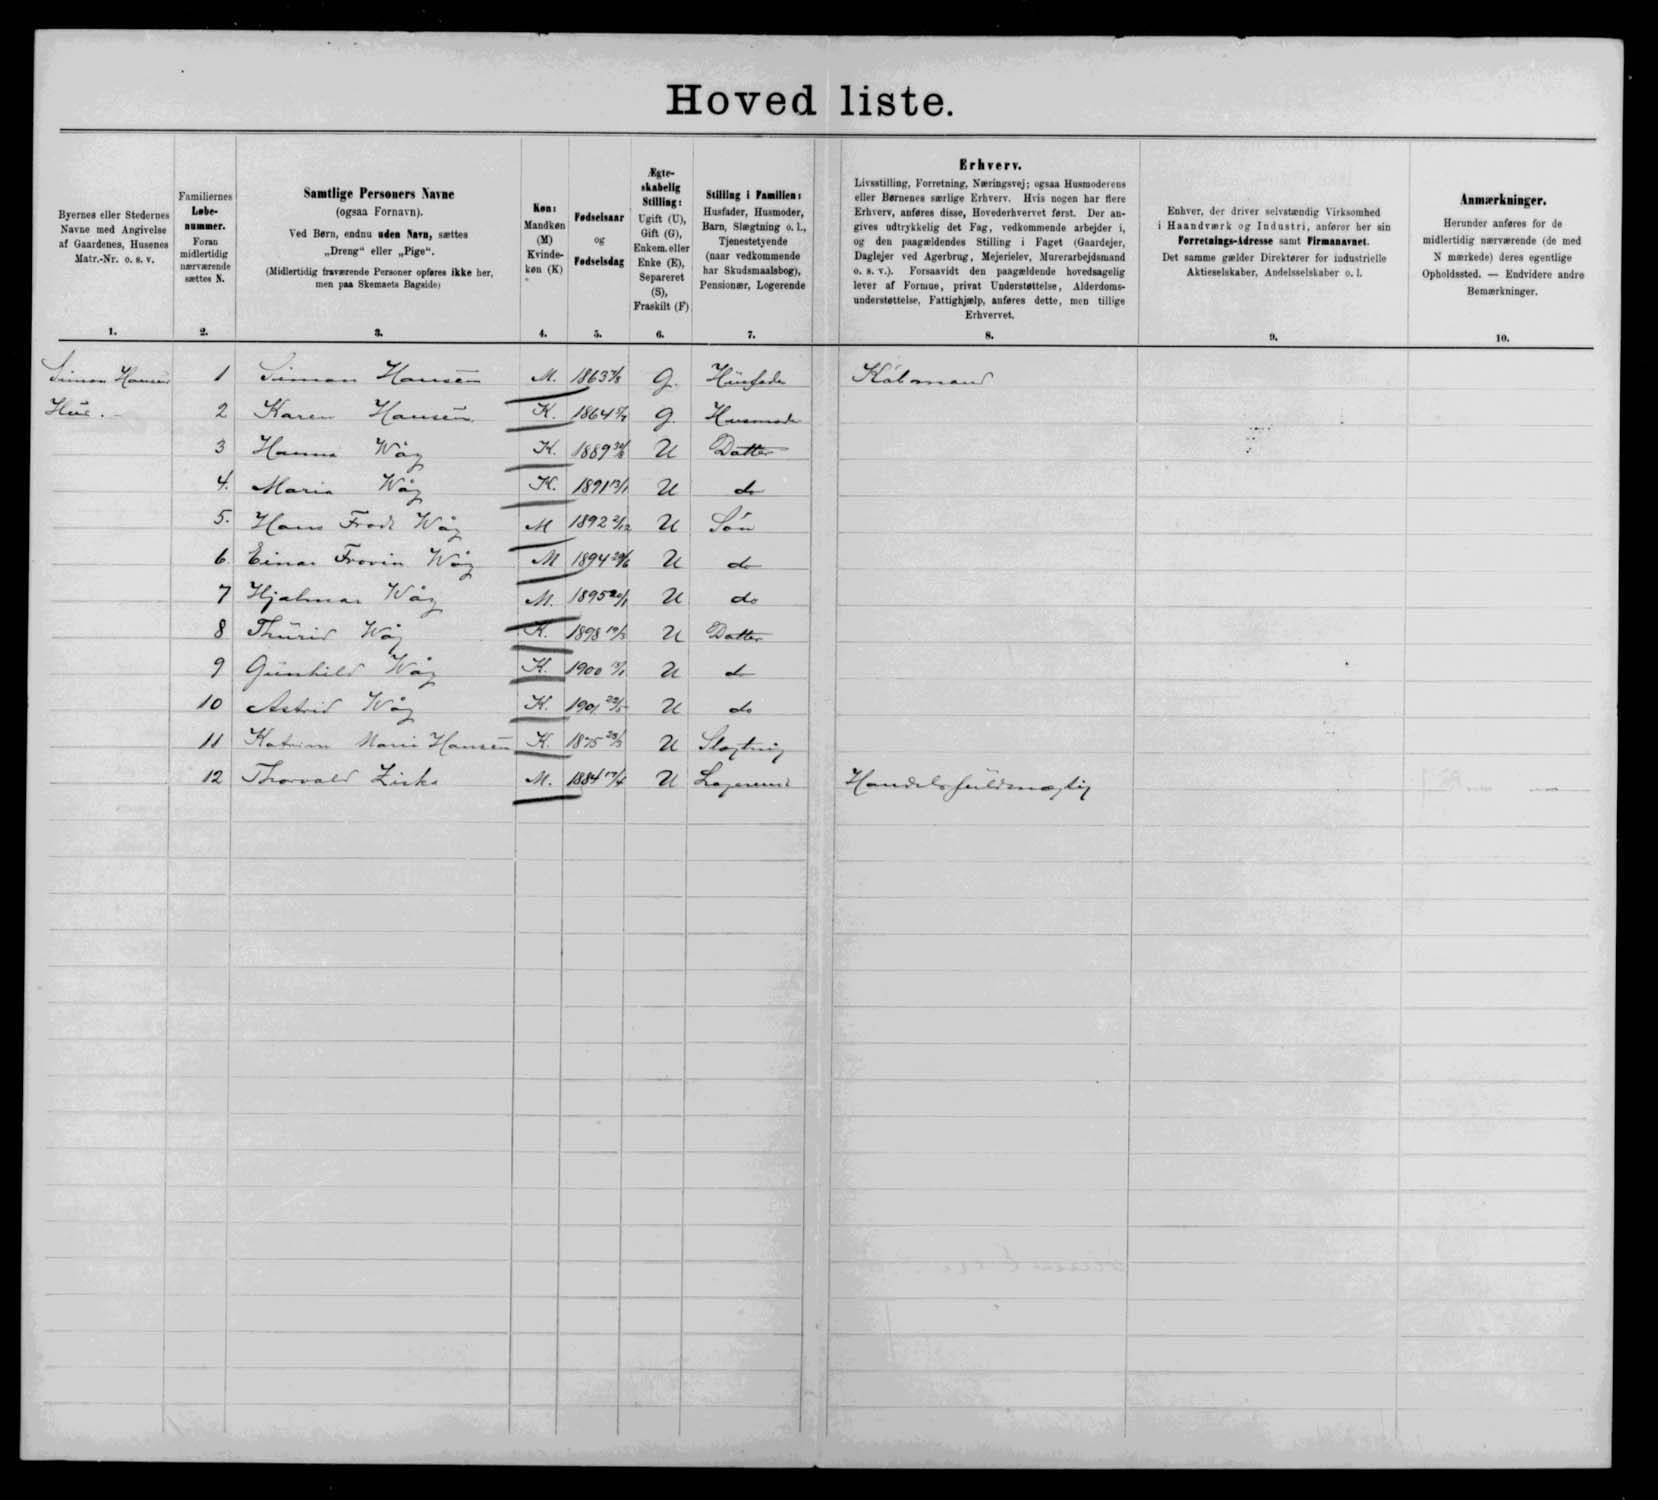 Hovedliste.
Byernes eller Stedernes
Navne med Angivelse
af Gaardenes, Husenes
Matr.-Nr. o. s. v.
1.
Familiernes
Løbe-
nummer.
Foran
midlertidig
nærværende
sættes N.
2.
Samtlige Personers Navne
(ogsaa Fornavn).
Ved Børn, endnu uden Navn, sættes
„Dreng“ eller „Pige“.
(Midlertidig fraværende Personer opføres ikke her,
men paa Skemaets Bagside)
3.
Køn:
Mandkøn
(M)
Kvinde-
køn (K)
4.
Fødselsaar
og
Fødselsdag
5.
Ægte-
skabelig
Stilling:
Ugift (U),
Gift (G),
Enkem. eller
Enke (E),
Separeret
(S),
Fraskilt (F)
6.
Stilling i Familien:
Husfader, Husmoder,
Barn, Slægtning o. l.,
Tjenestetyende
(naar vedkommende
har Skudsmaalsbog),
Pensionær, Logerende
7.
Erhverv.
Livsstilling, Forretning, Næringsvej; ogsaa Husmoderens
eller Børnenes særlige Erhverv. Hvis nogen har flere
Erhverv, anføres disse, Hovederhvervet først. Der an-
gives udtrykkelig det Fag, vedkommende arbejder i,
og den paagældendes Stilling i Faget (Gaardejer,
Daglejer ved Agerbrug, Mejerielev, Murerarbejdsmand
o. s. v.). Forsaavidt den paagældende hovedsagelig
lever af Formue, privat Understøttelse, Alderdoms-
understøttelse, Fattighjælp, anføres dette, men tillige
Erhvervet.
8.
Enhver, der driver selvstændig Virksomhed
i Haandværk og Industri, anfører her sin
Forretnings-Adresse samt Firmanavnet.
Det samme gælder Direktører for industrielle
Aktieselskaber, Andelsselskaber o. l.
9.
Anmærkninger.
Herunder anføres for de
midlertidig nærværende (de med
N mærkede) deres egentlige
Opholdssted. — Endvidere andre
Bemærkninger.
10.
Simon Hansens 1 Simon Hansen M. 1863 G. Husfader Købmand
Hus. 2 Karen Hansen K. 1864 G. Husmoder
3 Hanna Wåg K. 1889 U Datter
4. Maria Wåg K. 1891 U do
5. Hans Frode Wåg M 1892 2/12 U Søn
6 Einar Frovin Wåg M 1894 U do
7 Hjalmar Wåg M. 1895 U do
8 Thurid Wåg K. 1898 U Datter
9 Gunhild Wåg K. 1900 U do
10 Astrid Wåg K. 1901 U do
11 Katrine Marie Hansen K. 1875 U Slægtning
12 Thorvald Ziska M. 1884 U Logerende Handelsfuldmægtig